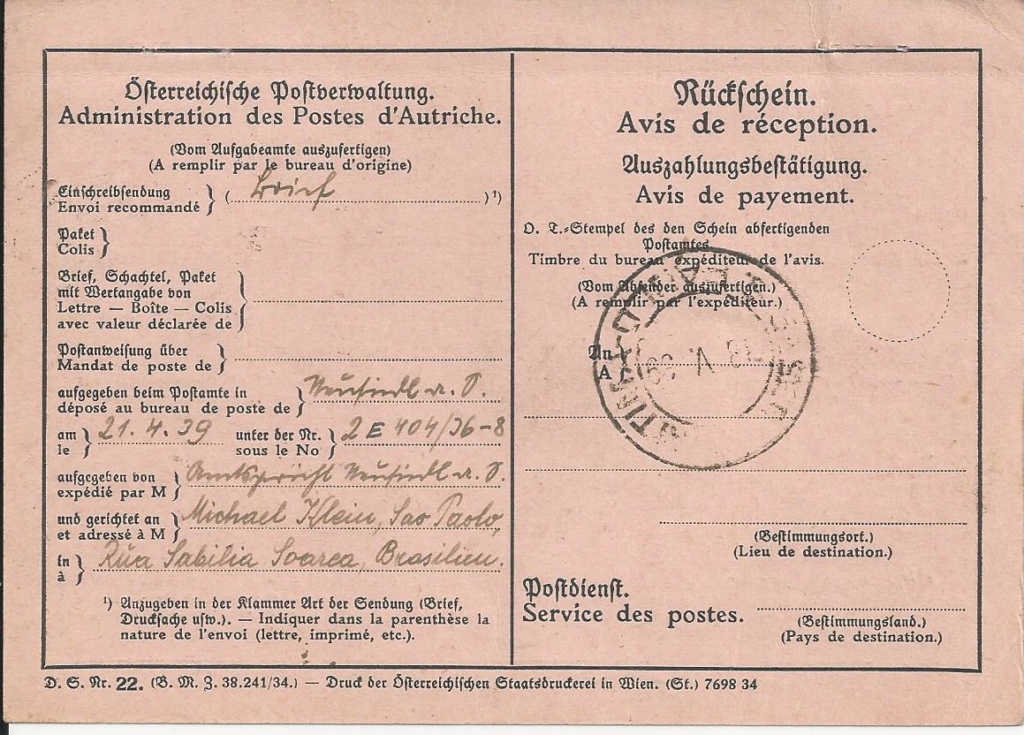 Österreichische Postverwaltung.
Administration des Postes d'Autriche.
(Vom Aufgabeamte auszufertigen)
(A remplir par le bureau d'origine)
Einschreibsendung
Envoi recommandé } ( Brief )¹)
Paket
Colis }
Brief, Schachtel, Paket
mit Wertangabe von
Lettre — Boîte — Colis
avec valeur déclarée de }
Postanweisung über
Mandat de poste de }
aufgegeben beim Postamte in
déposé au bureau de poste de } Neusiedl a. S.
am
le } 21. 4. 39 unter der Nr.
sous le No } 2 E 404/36-8
aufgegeben von
expédié par M } Amtsgericht Neusiedl a. S.
und gerichtet an
et adressé à M } Michael Klein, Sao Paolo,
in
à } Rúa Sabilia Soarea, Brasilien.
¹) Anzugeben in der Klammer Art der Sendung (Brief,
Drucksache usw.). — Indiquer dans la parenthèse la
nature de l'envoi (lettre, imprimé, etc.).
Rückschein.
Avis de réception.
Auszahlungsbestätigung.
Avis de payement.
O. T.-Stempel des den Schein abfertigenden
Postamtes
Timbre du bureau expéditeur de l'avis.
(Vom Absender auszufertigen.)
(A remplir par l'expéditeur.)
An
A
(Bestimmungsort.)
(Lieu de destination.)
Postdienst.
Service des postes.
(Bestimmungsland.)
(Pays de destination.)
D. S. Nr. 22. (B. M. Z. 38.241/34.) — Druck der Österreichischen Staatsdruckerei in Wien. (St.) 7698 34